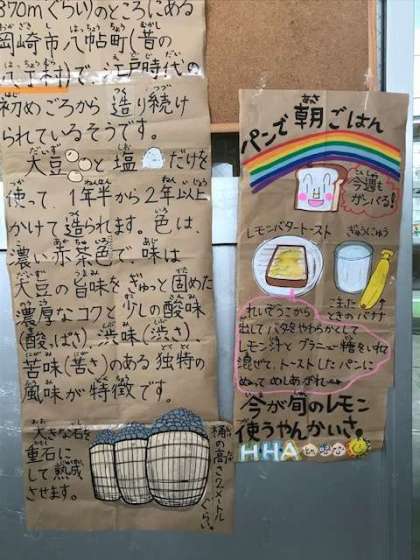 870m(ぐらい)のところにある
岡崎市八帖町(昔の
八丁村)で、江戸時代の
初めごろから造り続け
られているそうです。
大豆と塩だけを
使って、1年半から2年以上
かけて造られます。色は、
濃い赤茶色で、味は
大豆の旨味をぎゅっと固めた
濃厚なコクと少しの酸味
(酸っぱさ)、渋味(渋さ)、
苦味(苦さ)のある独特の
風味が特徴です。
大きな石を
重石に
して熟成
させます。
桶の高さ2メートルぐらい。
パンで朝ごはん
今週も
ガンバる!
レモンバタートースト
ぎゅうにゅう
こまった
ときのバナナ
れいぞうこから
出してバタをやわらかくして
レモン汁とグラニュー糖をいれて
混ぜて、トーストしたパンに
ぬってめしあがれ
今が旬のレモン
使うやんかいさ。
HHA